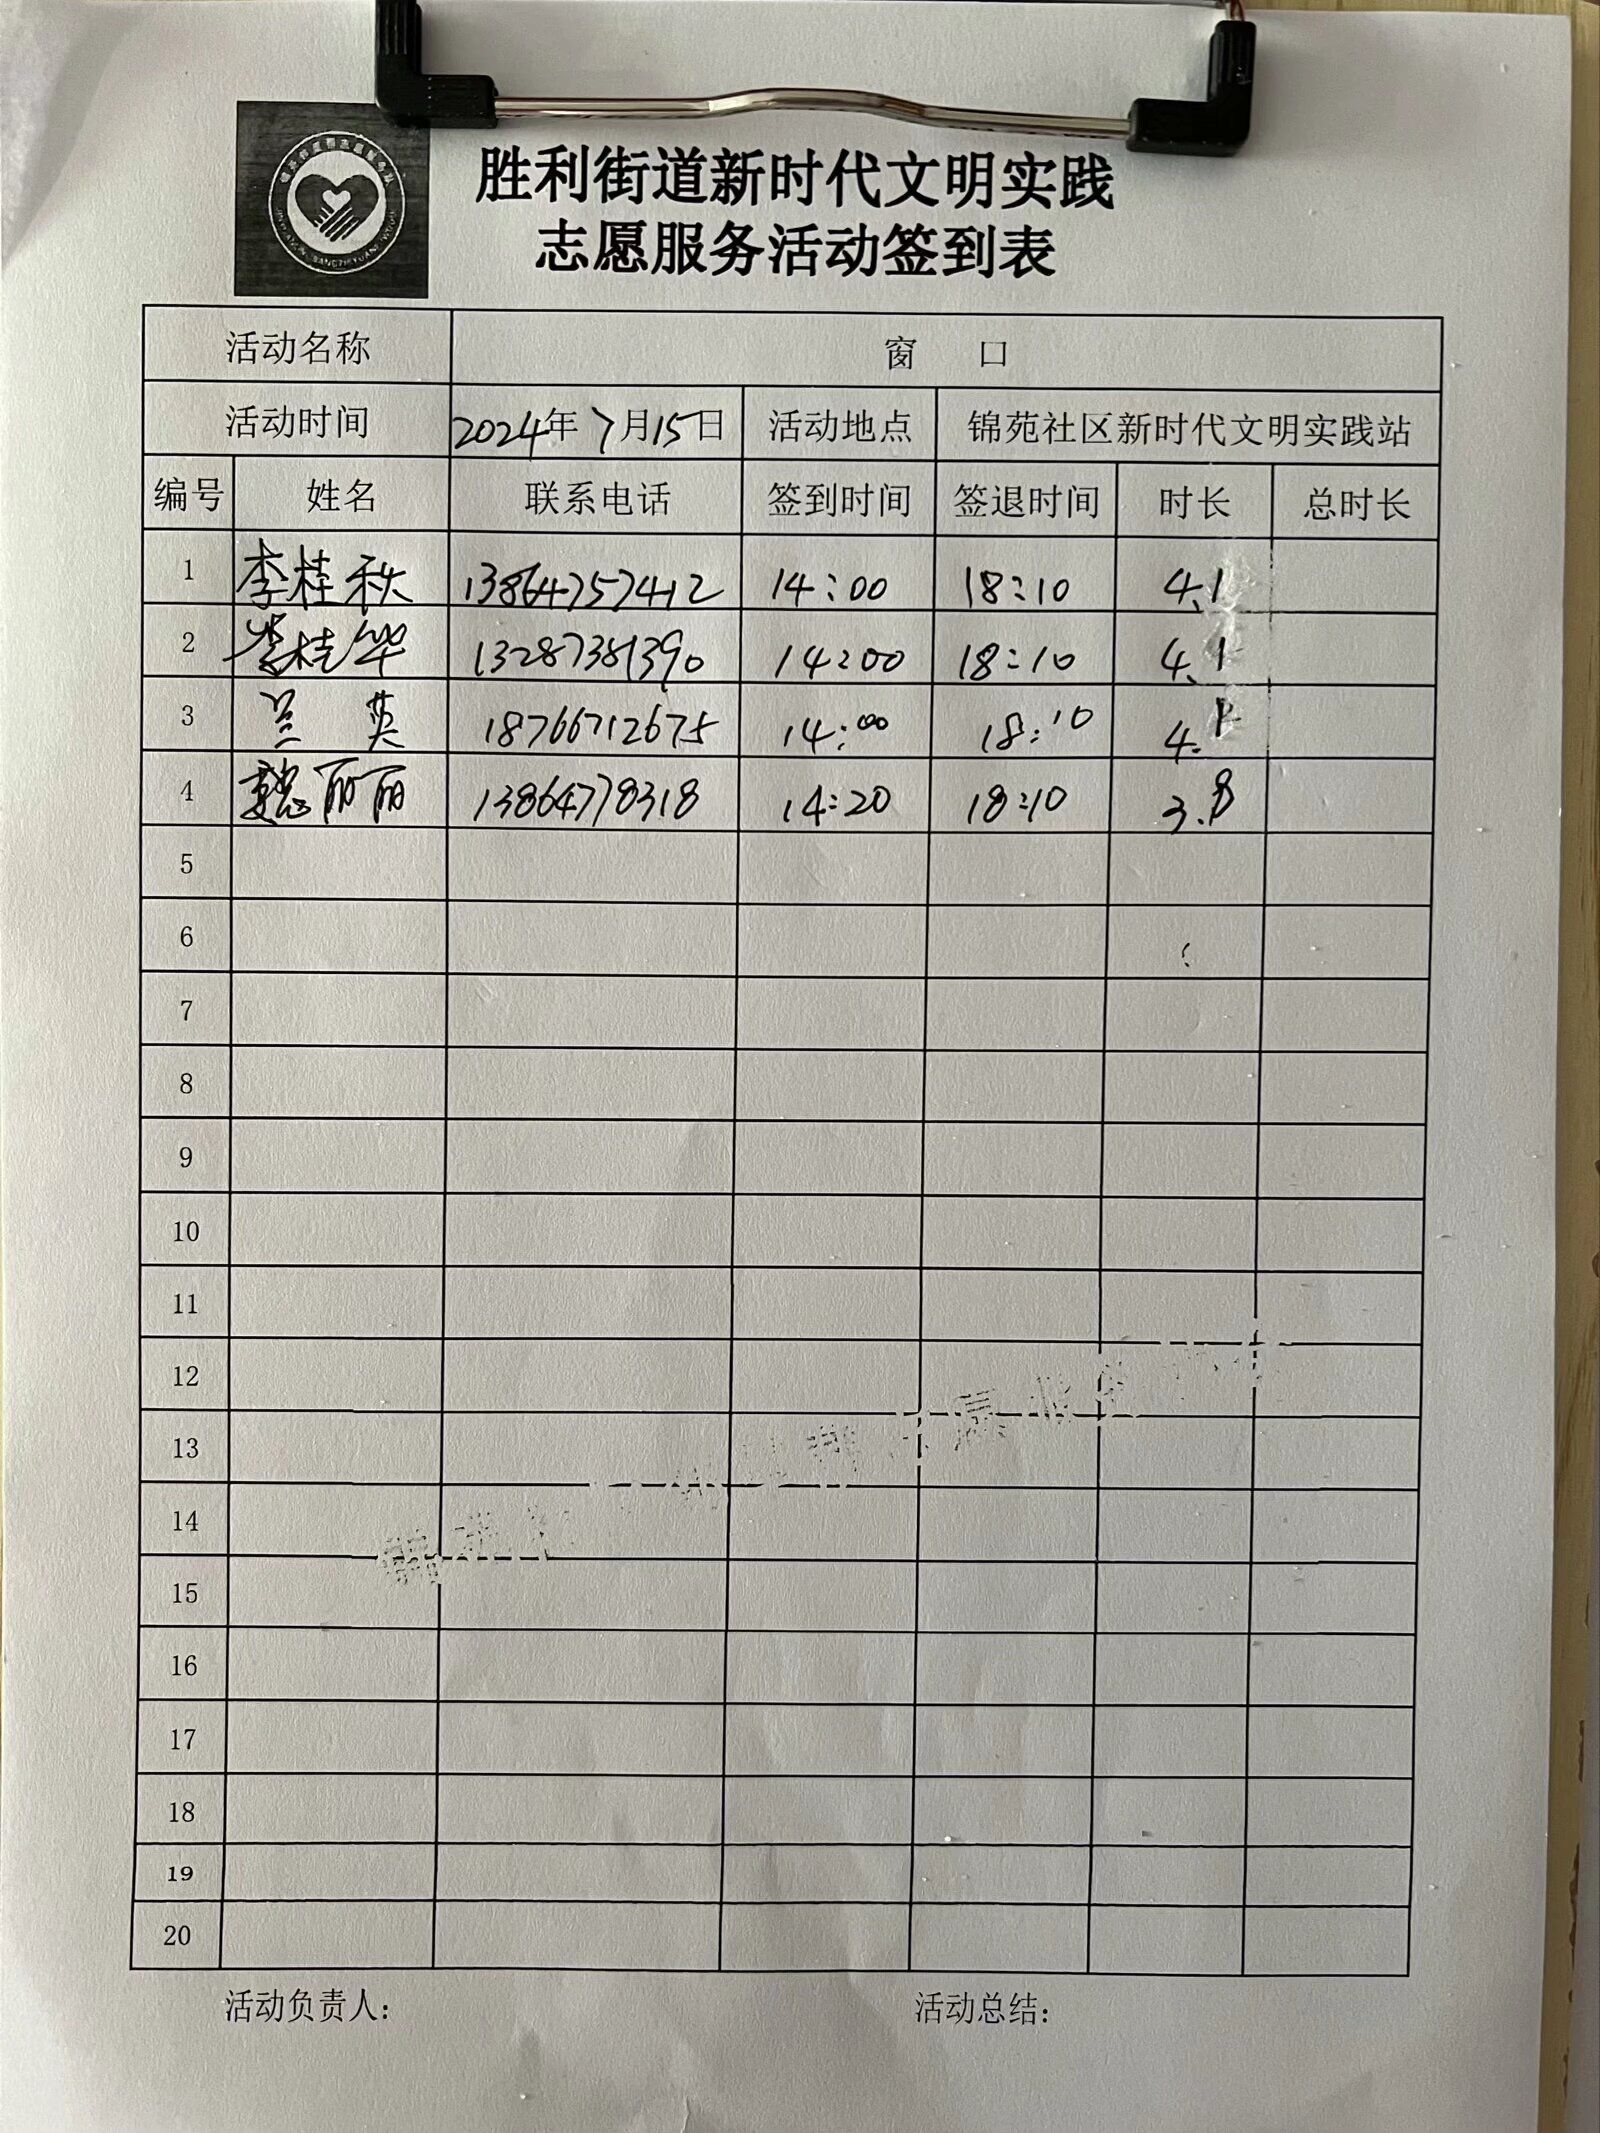 胜利街道新时代文明实践
志愿服务活动签到表
活动名称 窗 口
活动时间 2024年7月15日 活动地点 锦苑社区新时代文明实践站
编号 姓名 联系电话 签到时间 签退时间 时长 总时长
1 李桂秋 13864757412 14:00 18:10 4.1
2 李桂华 13287381390 14:00 18:10 4.1
3 兰英 18766712675 14:00 18:10 4.1
4 魏丽丽 13864778318 14:20 18:10 3.8
5
6
7
8
9
10
11
12
13
14
15
16
17
18
19
20
活动负责人: 活动总结: